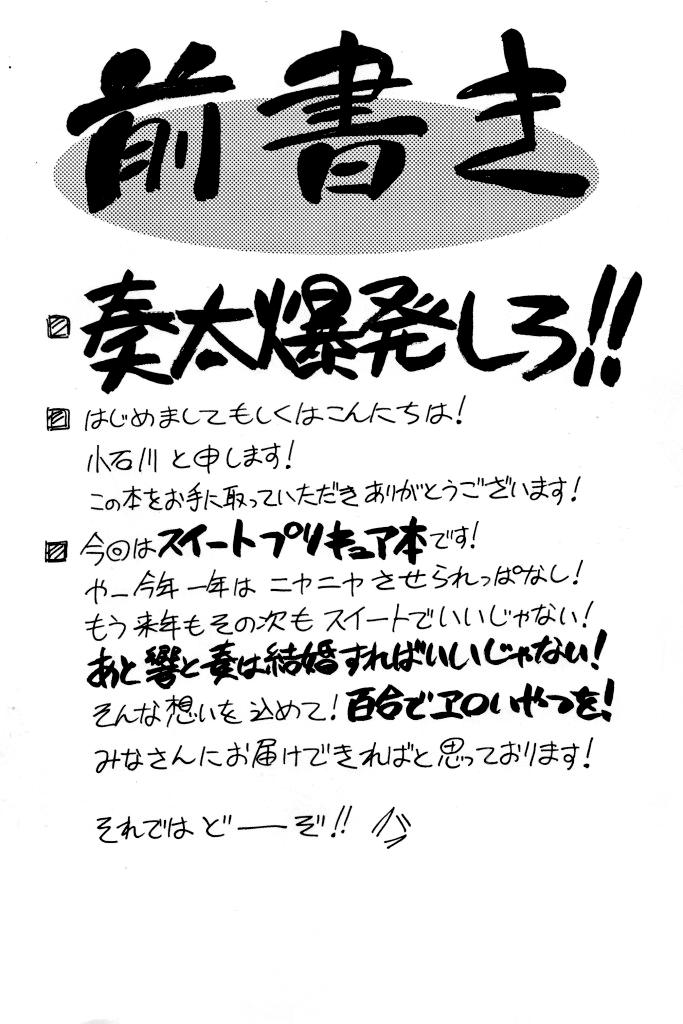 前書き
奏太爆発しろ!!
はじめましてもしくはこんにちは!
小石川と申します!
この本をお手に取っていただきありがとうございます!
今回はスイートプリキュア本です!
やー今年一年はニヤニヤさせられっぱなし!
もう来年もその次もスイートでいいじゃない!
あと響と奏は結婚すればいいじゃない!
そんな想いを込めて!百合でエロいやつを!
みなさんにお届けできればと思っております!
それではどーぞ!!